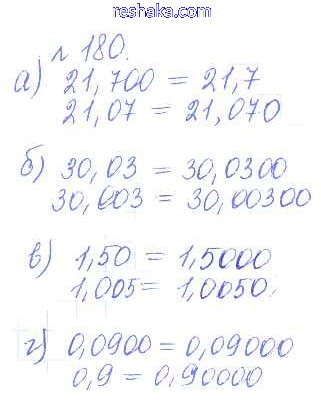 reshaka.com
№ 180.
а) 21,700 = 21,7
21,07 = 21,070
б) 30,03 = 30,0300
30,003 = 30,00300
в) 1,50 = 1,5000
1,005 = 1,0050.
г) 0,0900 = 0,09000
0,9 = 0,90000